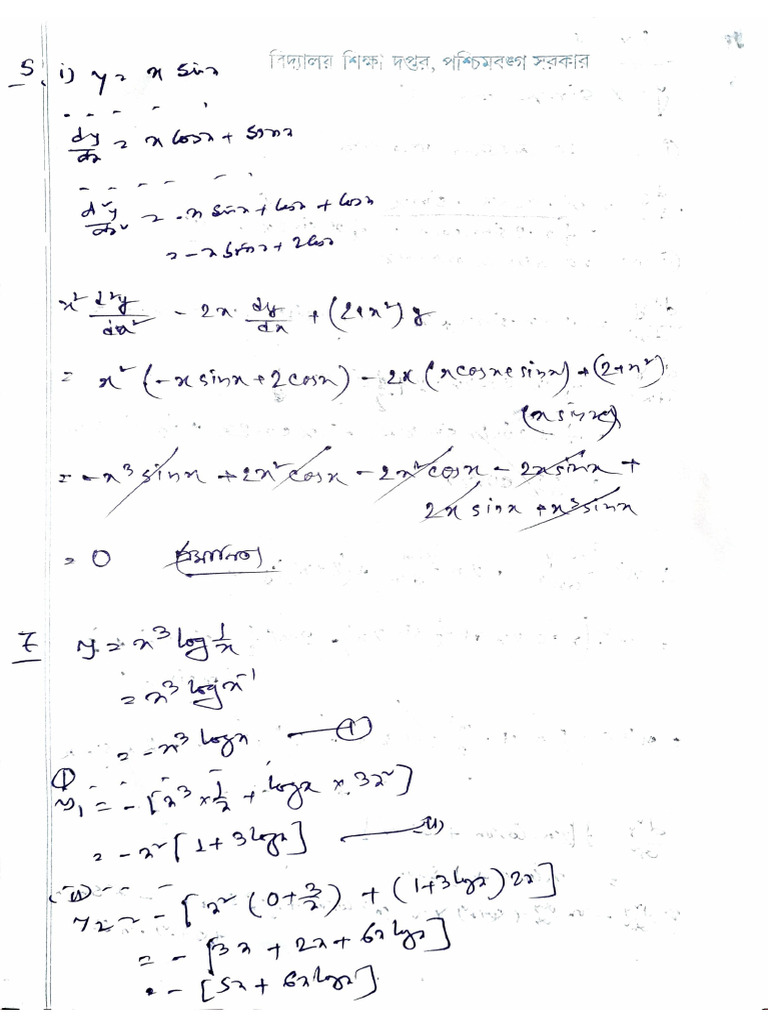 বিদ্যালয় শিক্ষা দপ্তর, পশ্চিমবঙ্গ সরকার
5. i) y = x sinx
dy/dx = x cosx + sinx
d²y/dx² = -x sinx + cosx + cosx
= -x sinx + 2cosx
x² d²y/dx² - 2x. dy/dx + (2+x²) y
= x² (-x sinx + 2cosx) - 2x (x cosx + sinx) + (2+x²).
(x sinx)
= -x³ sinx + 2x² cosx - 2x² cosx - 2x sinx +
2x sinx + x³ sinx
= 0 প্রমাণিত।
7 y = x³ log 1/x
= x³ log x⁻¹
= -x³ logx —— (I)
(I)
y₁ = - [x³ × 1/x + logx × 3x²]
= - x² [1 + 3 logx] —— (II)
(II)
y₂ = - [x² (0 + 3/x) + (1+3logx) 2x]
= - [3x + 2x + 6x logx]
= - [5x + 6x logx]